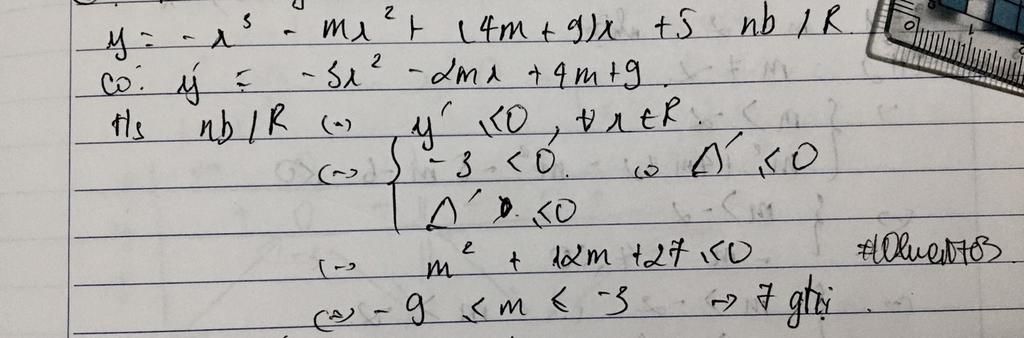 y = -x³ - mx² + (4m + 9)x + 5 nb / R
Có: y' = -3x² - 2mx + 4m + 9
Hs nb / R (=) y' ≤ 0, ∀ x ∈ R.
(=) { -3 < 0. (=) Δ' ≤ 0
Δ' ≤ 0
(=) m² + 12m + 27 ≤ 0
(=) -9 ≤ m ≤ -3 → 7 gtrị.